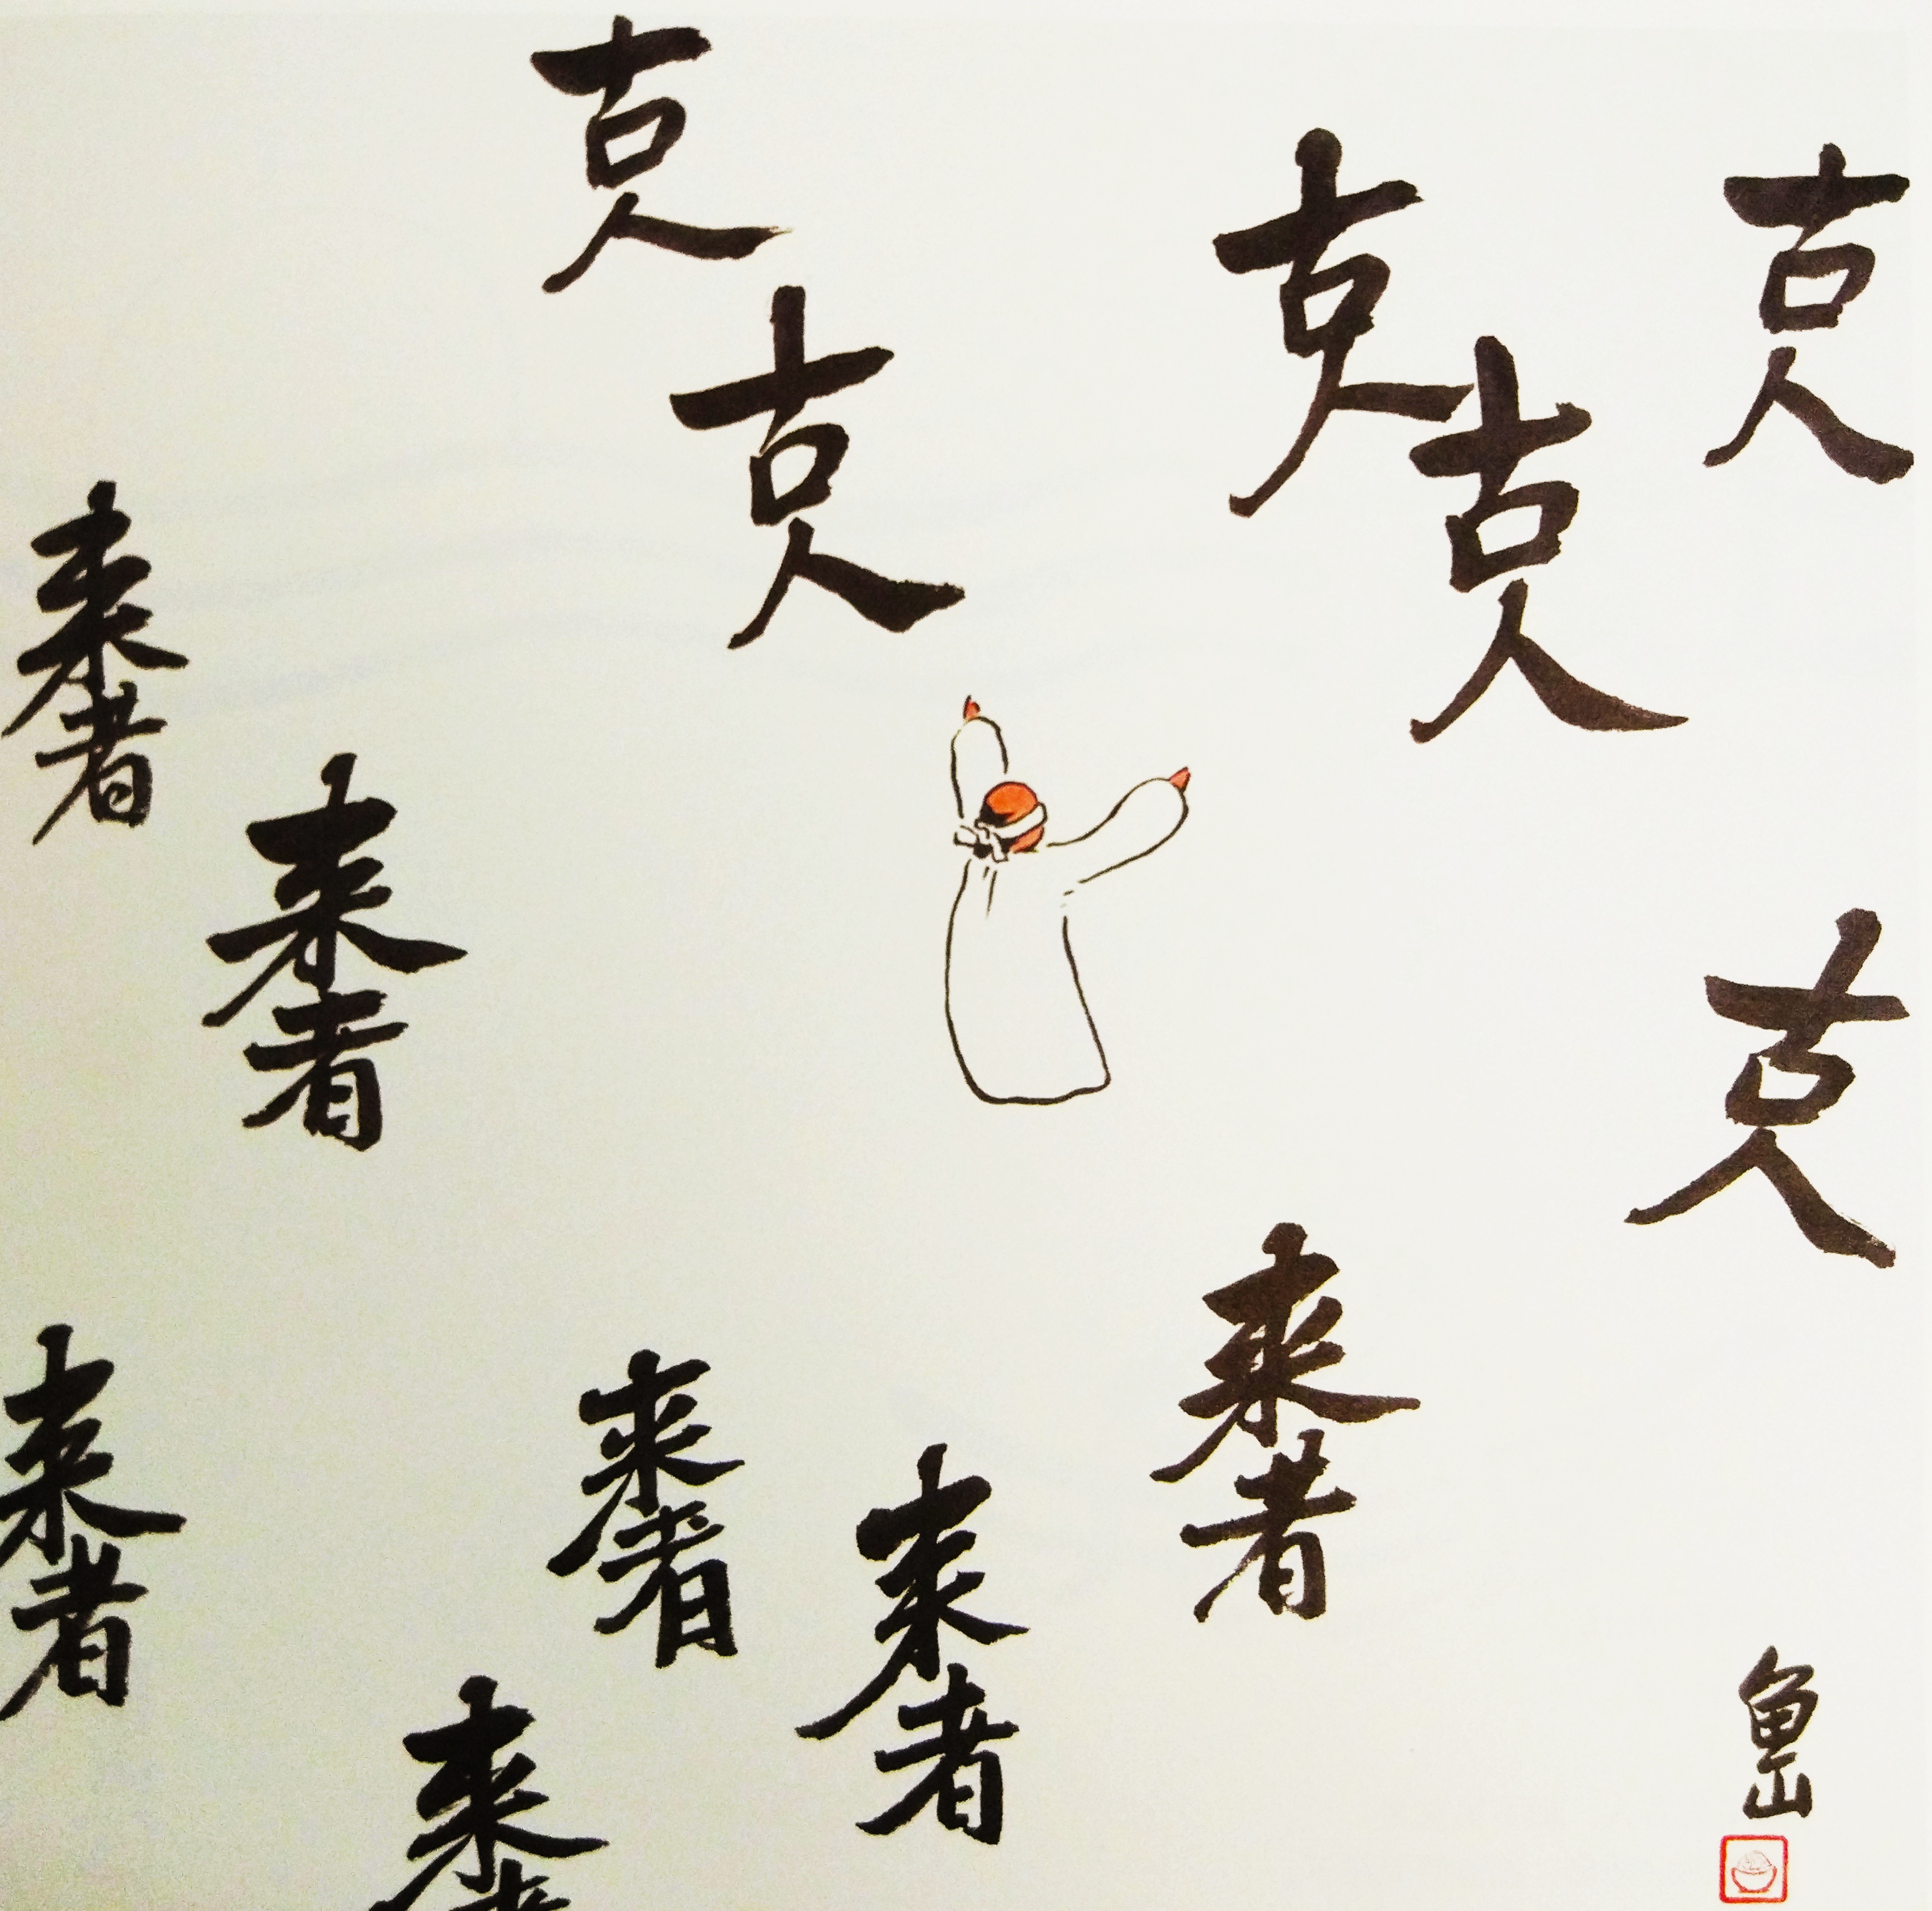 古人
古人
古人
古人
古人
古人
来者
来者
来者
来者
来者
来者
来
鱼山